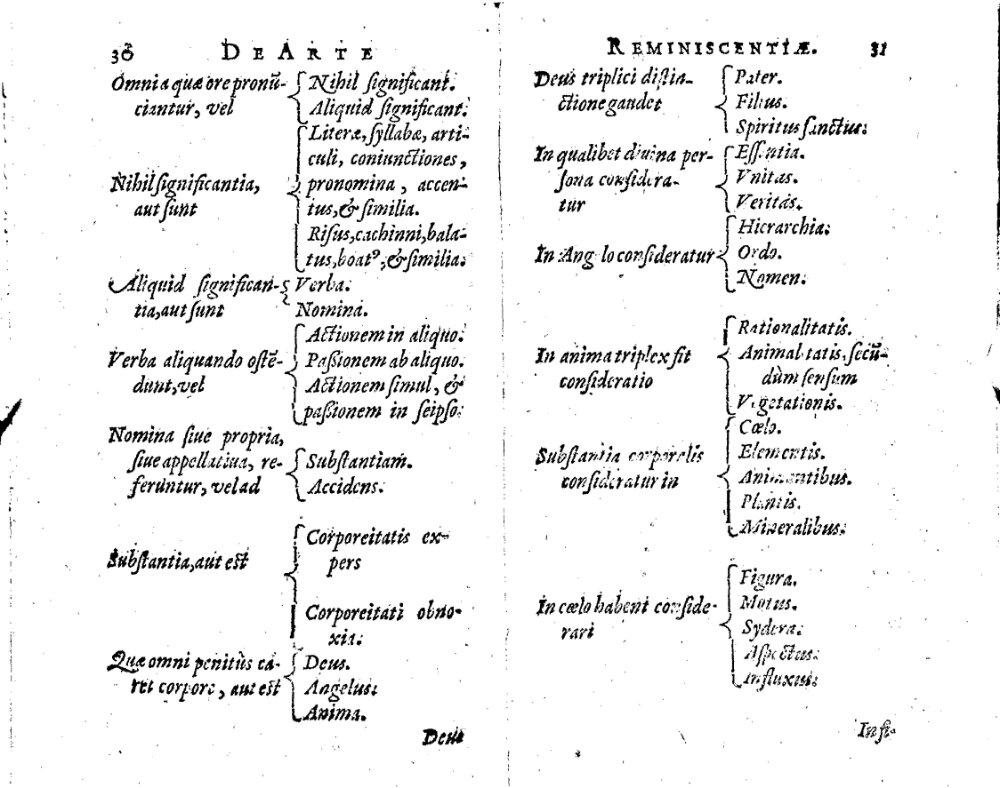 30 DE ARTE
Omnia quæ ore pronũ-
ciantur, vel
Nihil significant.
Aliquid significant:
Nihil significantia,
aut sunt
Literæ, syllabæ, arti-
culi, coniunctiones,
pronomina, accen-
tus, & similia.
Risus, cachinni, bala-
tus, boatꝰ, & similia:
Aliquid significan-
tia, aut sunt
Verba:
Nomina.
Verba aliquando ostẽ-
dunt, vel
Actionem in aliquo:
Passionem ab aliquo.
Actionem simul, &
passionem in seipso:
Nomina siue propria,
siue appellatiua, re-
feruntur, vel ad
Substantiam.
Accidens.
Substantia, aut est
Corporeitatis ex-
pers
Corporeitati obno-
xia:
Quæ omni penitùs ca-
ret corpore, aut est
Deus.
Angelus:
Anima.
Deus
REMINISCENTIÆ. 31
Deus triplici distin-
ctione gaudet
Pater.
Filius.
Spiritus sanctus:
In qualibet diuina per-
sona considera-
tur
Essentia.
Vnitas.
Veritas.
In Angelo consideratur
Hierarchia:
Ordo.
Nomen:
In anima triplex fit
consideratio
Rationalitatis.
Animalitatis, secũ-
dùm sensum
Vegetationis.
Substantia corporalis
consideratur in
Cœlo.
Elementis.
Animantibus.
Plantis.
Mineralibus:
In cœlo habent conside-
rari
Figura.
Motus.
Sydera:
Aspectus:
Influxus:
Infi-